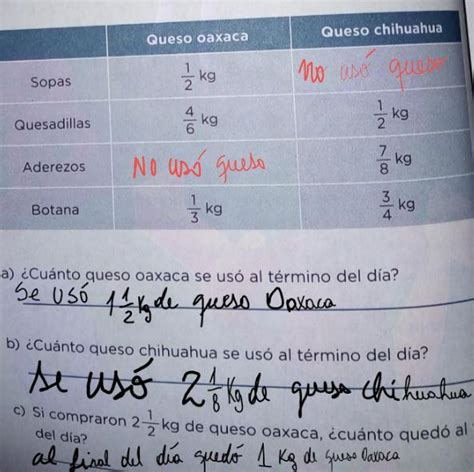 Queso oaxaca Queso chihuahua
Sopas 1/2 kg No usó queso
Quesadillas 4/6 kg 1/2 kg
Aderezos No usó queso 7/8 kg
Botana 1/3 kg 3/4 kg
a) ¿Cuánto queso oaxaca se usó al término del día?
Se usó 1 1/2 Kg de queso Oaxaca
b) ¿Cuánto queso chihuahua se usó al término del día?
Se usó 2 1/8 Kg de queso chihuahua
c) Si compraron 2 1/2 kg de queso oaxaca, ¿cuánto quedó al
del día?
al final del día quedó 1 Kg de queso Oaxaca